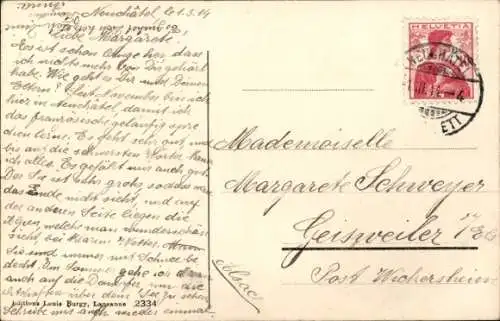 Neuchâtel d. 1.3.14
Liebe Margarete!
Es ist schon lange her, dass
ich nichts mehr von Dir gehört
habe. Wie geht es Dir und Deinen
Eltern? Seit November bin ich
hier in Neuchâtel, damit ich
das französische geläufig spre
chen lerne. Es geht sehr gut und
bis auf die schwersten Worte kann
ich alles. Es gefällt mir auch gut.
Der See ist sehr gross sodass man
das Ende nicht sieht, und auf
der anderen Seite liegen die
Alpen welche man wunderschön
sieht, bei klarem Wetter.
Sie sind immer mit Schnee be
deckt. Im Sommer gehe ich dann
auch auf die Dampfer um die
Ortschaften über dem See zu sehen
Schreibe mir auch wieder einmal
Editions Louis Burgy, Lausanne 2334
HELVETIA
NEUCHATEL
Mademoiselle
Margarete Schweyer
Geiszweiler
Post Wickersheim
Elsass